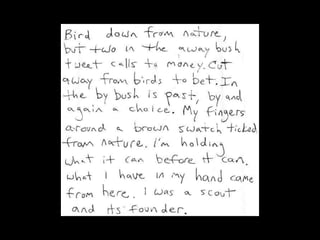 Bird down from nature,
but two in the away bush
tweet calls to money. Cut
away from birds to bet. In
the by bush is past, by and
again a choice. My fingers
around a brown swatch ticked
from nature. I'm holding
what it can before it can.
what I have in my hand came
from here. I was a scout
and its founder.